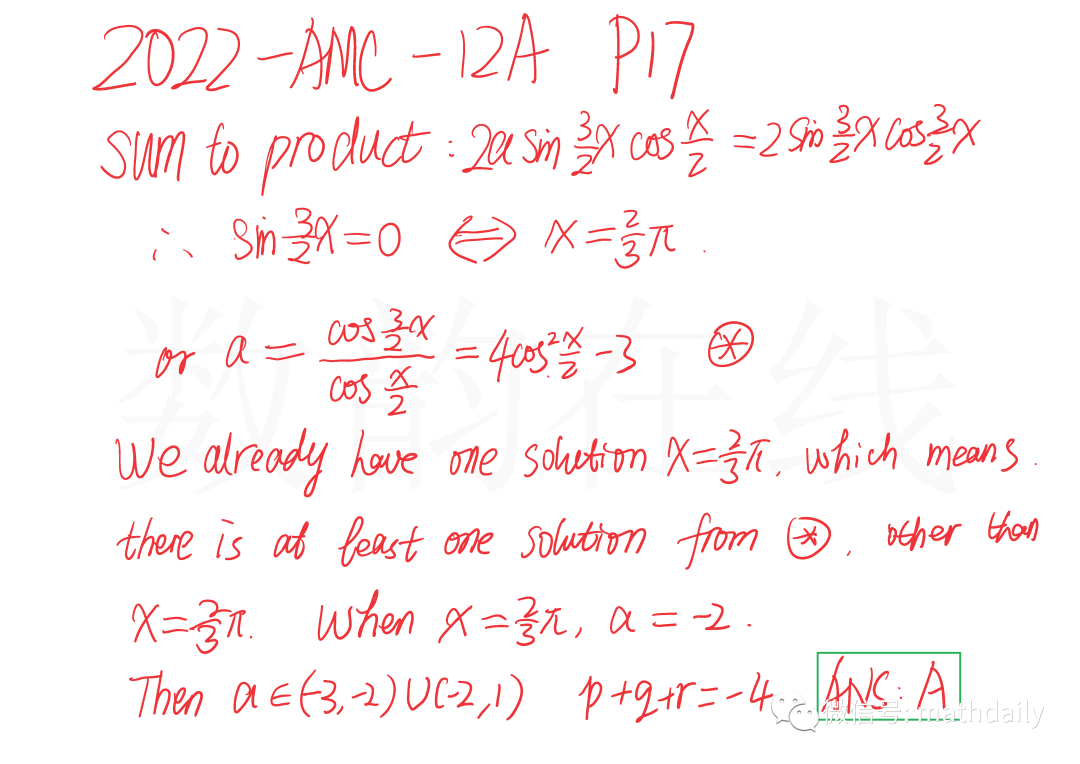 2022-AMC-12A P17
sum to product: 2a sin 3/2 x cos x/2 = 2 sin 3/2 x cos 3/2 x
∴ sin 3/2 x = 0 ⟺ x = 2/3 π.
or a = (cos 3/2 x)/(cos x/2) = 4cos² x/2 - 3 ⊛
We already have one solution x = 2/3 π, which means
there is at least one solution from ⊛, other than
x = 2/3 π. When x = 2/3 π, a = -2.
Then a ∈ (-3, -2) ∪ (-2, 1) p+q+r = -4 ANS: A
数韵在线
微信号: mathdaily